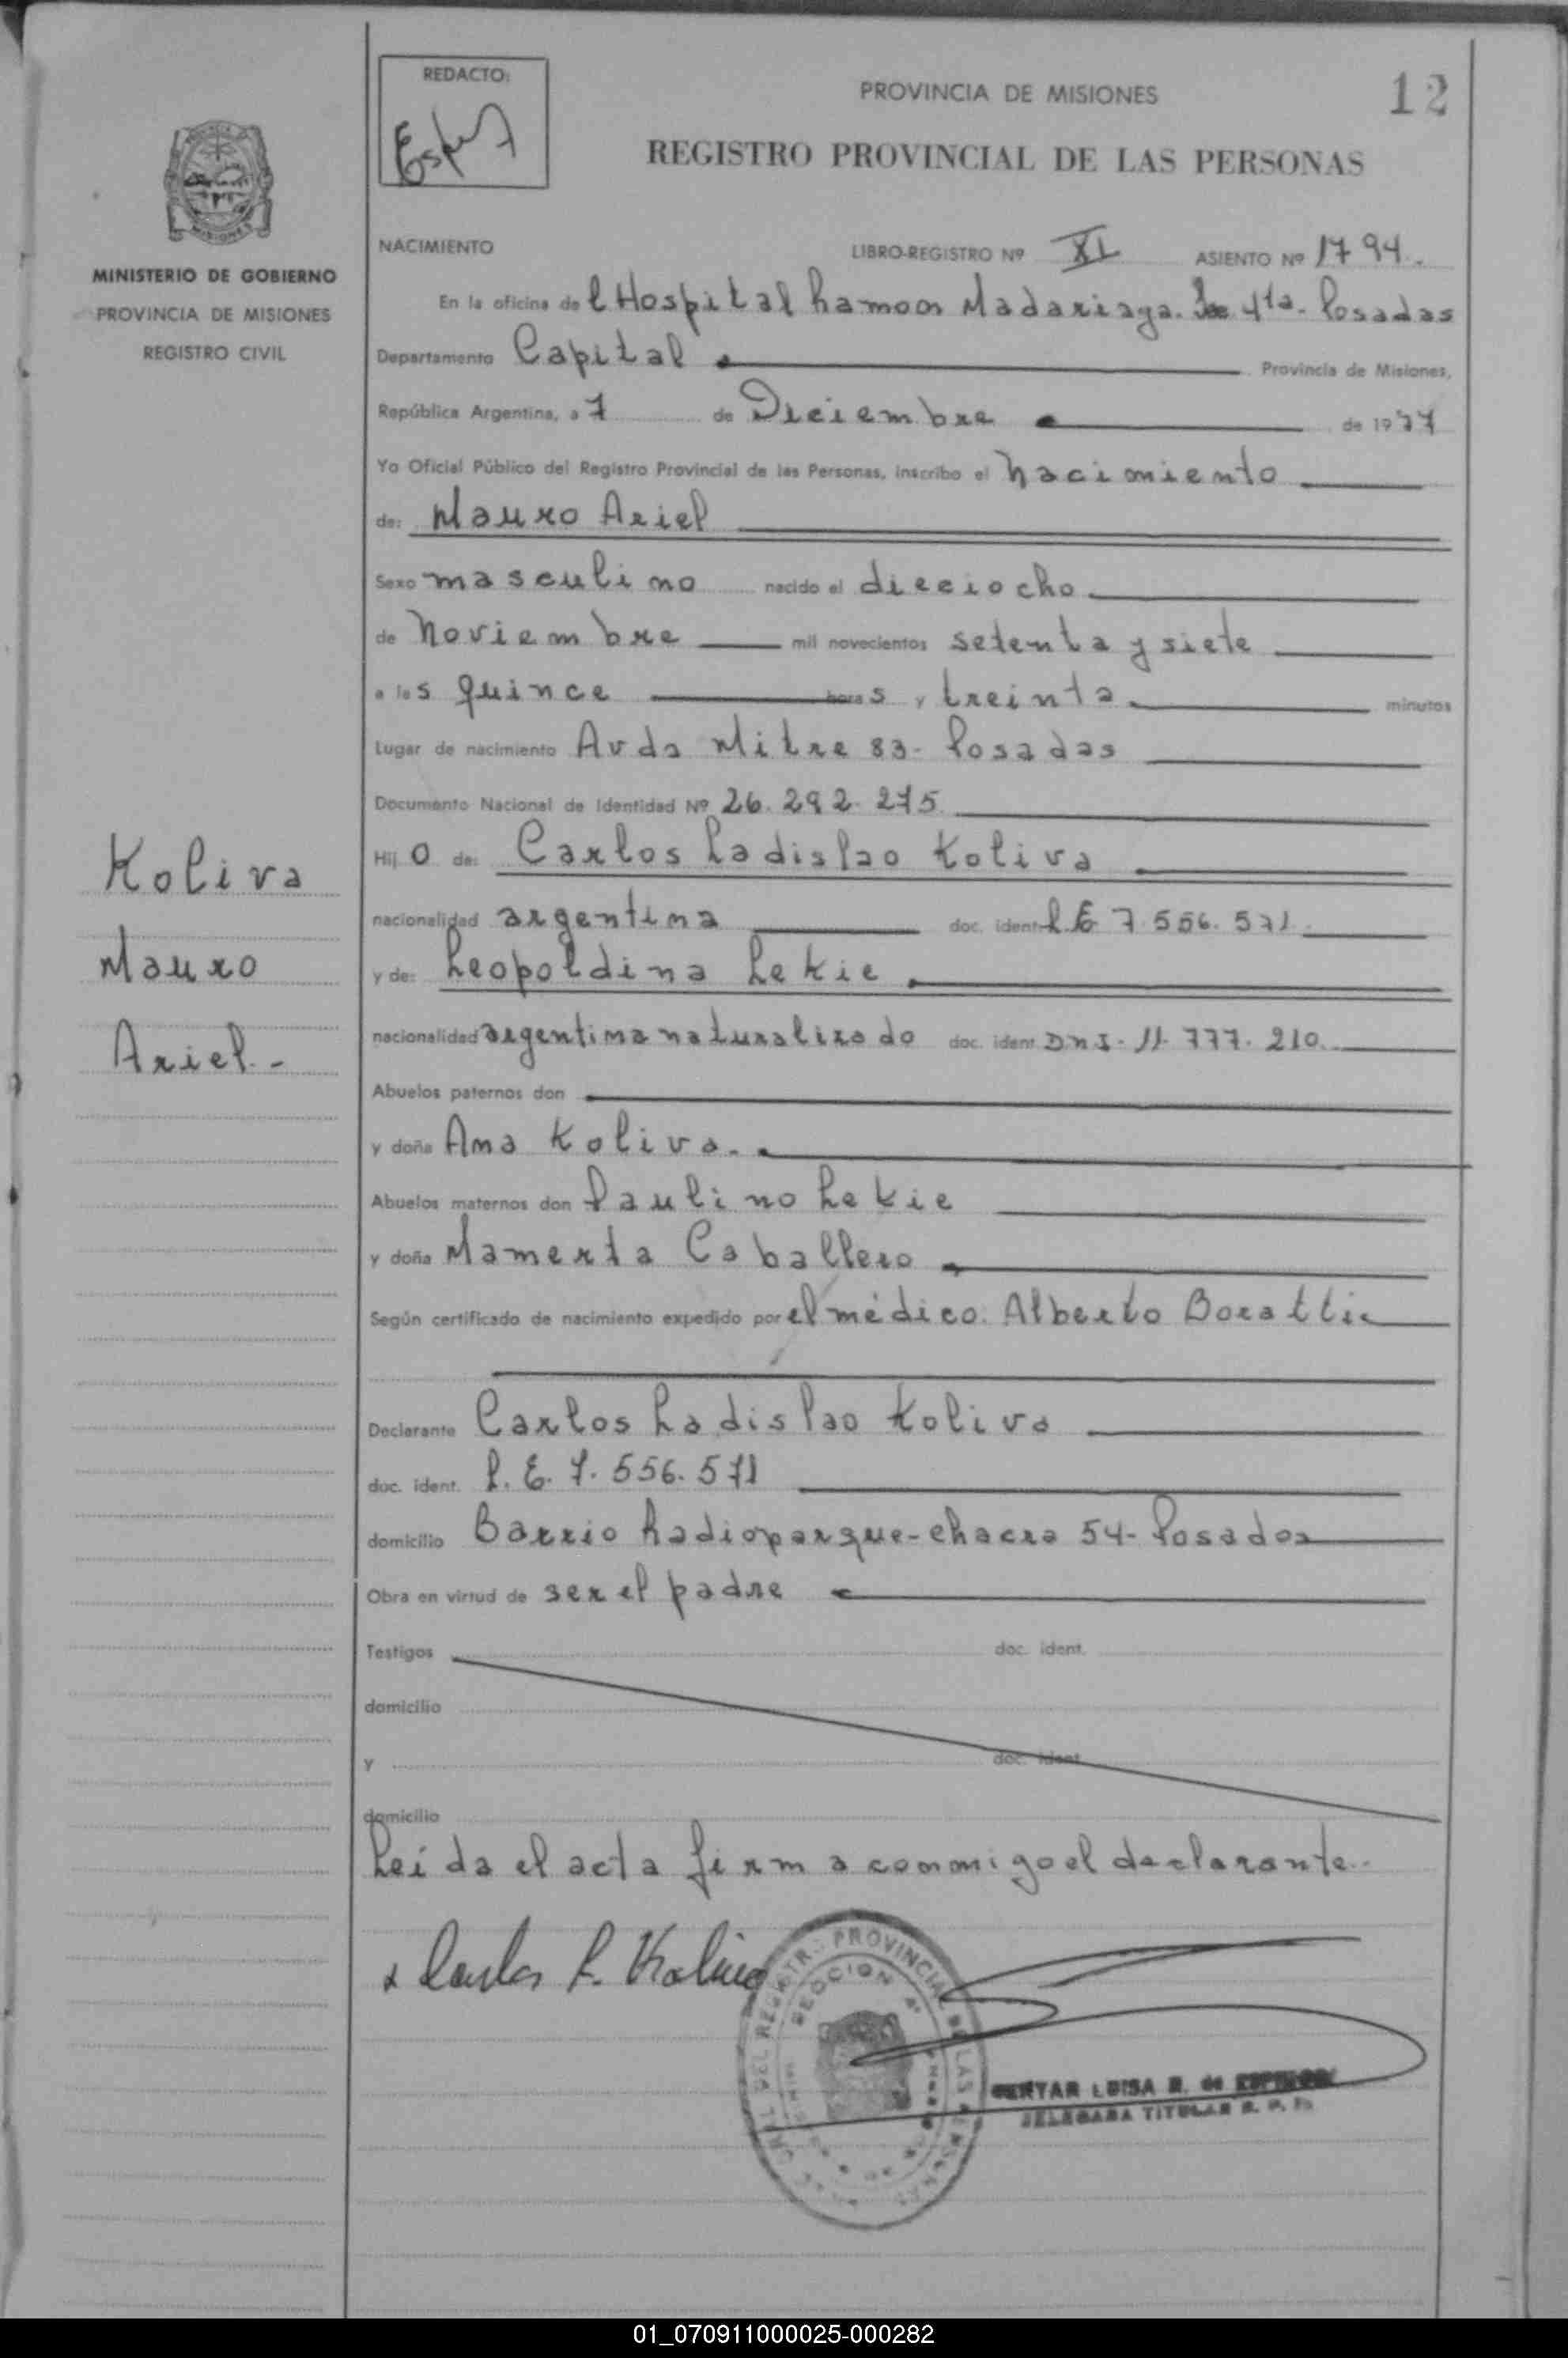 REDACTO:
PROVINCIA DE MISIONES
12
REGISTRO PROVINCIAL DE LAS PERSONAS
MINISTERIO DE GOBIERNO
PROVINCIA DE MISIONES
REGISTRO CIVIL
NACIMIENTO LIBRO-REGISTRO Nº XI ASIENTO Nº 1794.
En la oficina del Hospital Ramon Madariaga. 4ta. Posadas
Departamento Capital Provincia de Misiones,
República Argentina, a 7 de Diciembre de 1977
Yo Oficial Público del Registro Provincial de las Personas, inscribo el Nacimiento
de: Mauro Ariel
Sexo masculino nacido el dieciocho
de Noviembre mil novecientos setenta y siete
a las quince horas y treinta minutos
Lugar de nacimiento Avda Mitre 83- Posadas
Documento Nacional de Identidad Nº 26.292.275
Hijo de: Carlos Ladislao Koliva
Koliva
Mauro
Ariel.-
nacionalidad argentina doc. ident L.E 7.556.571
y de: Leopoldina Lekie
nacionalidad argentina naturalizado doc. ident DNI. 11.777.210.
Abuelos paternos don
y doña Ana Koliva.
Abuelos maternos don Paulino Lekie
y doña Mamerta Caballero
Según certificado de nacimiento expedido por el médico. Alberto
Declarante Carlos Ladislao Koliva
doc. ident. L.E. 7.556.571
domicilio Barrio Radioparque-chacra 54- Posadas
Obra en virtud de ser el padre
Testigos doc. ident.
domicilio
y doc. ident
domicilio
Leída el acta firma conmigo el declarante.
Carlos L. Koliva
DEL REGISTRO PROVINCIAL DE LAS PERSONAS
SECCION 4ª
LUISA R. de
TITULAR R. P. P.
01_070911000025-000282